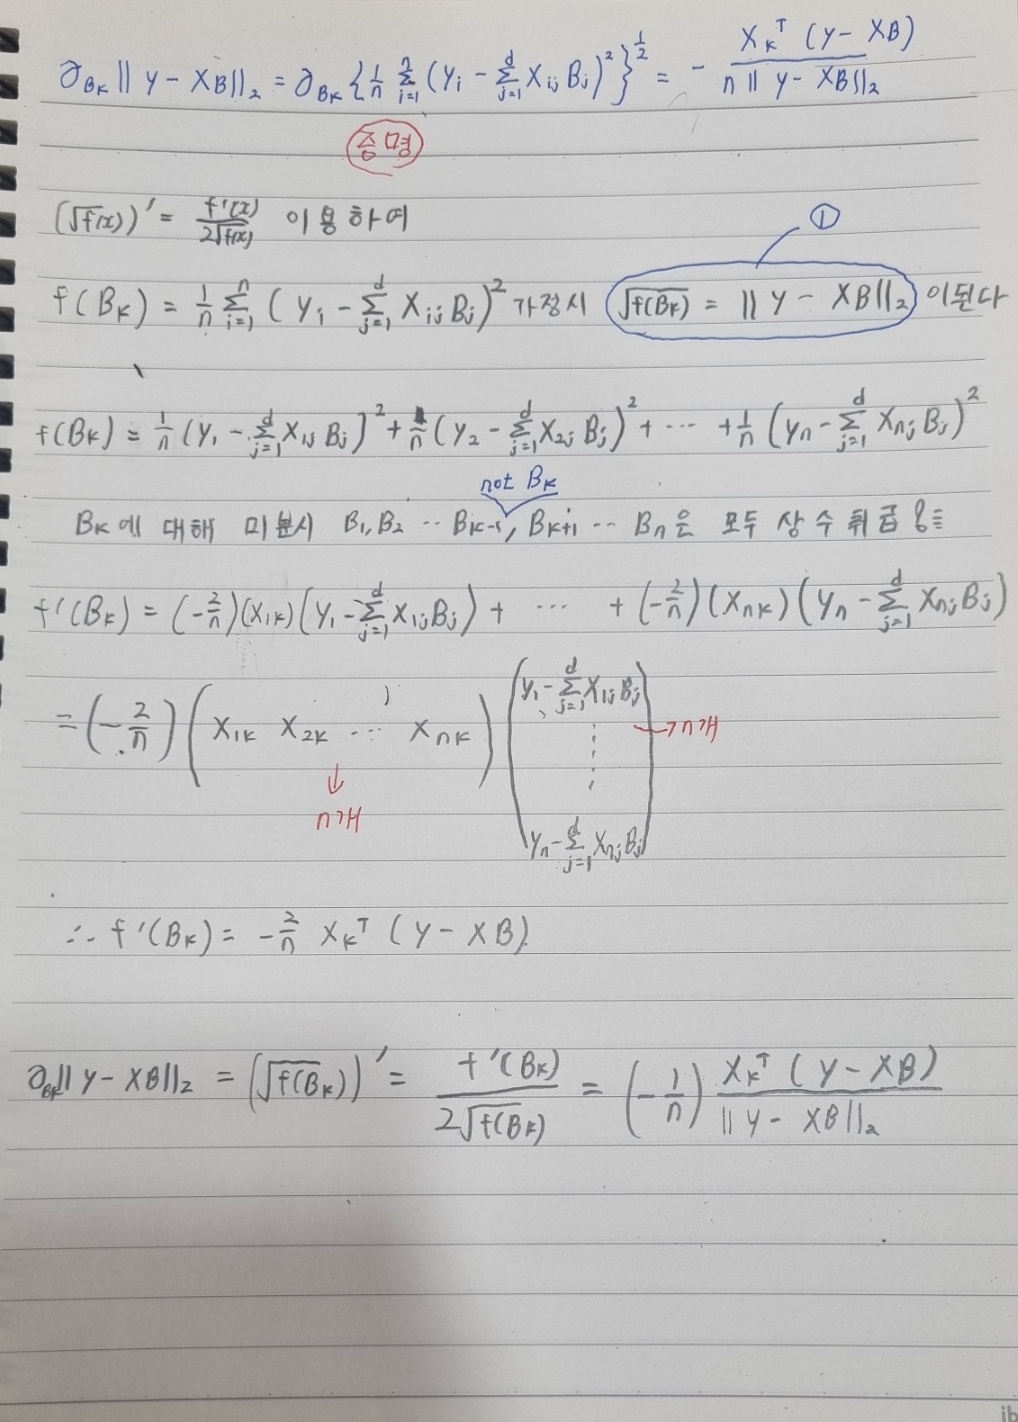 ∂_{B_K} || Y - XB ||_2 = ∂_{B_K} { 1/n Σ_{i=1}^{n} (Y_i - Σ_{j=1}^{d} X_{ij} B_j)^2 }^{1/2} = - X_K^T (Y - XB) / n || Y - XB ||_2
증명
(√f(x))' = f'(x) / 2√f(x) 이용하여
①
f(B_K) = 1/n Σ_{i=1}^{n} ( Y_i - Σ_{j=1}^{d} X_{ij} B_j )^2 가정시 √f(B_K) = || Y - XB ||_2 이된다
f(B_K) = 1/n (Y_1 - Σ_{j=1}^{d} X_{1j} B_j)^2 + 1/n (Y_2 - Σ_{j=1}^{d} X_{2j} B_j)^2 + ... + 1/n (Y_n - Σ_{j=1}^{d} X_{nj} B_j)^2
not B_K
B_K에 대해 미분시 B_1, B_2 .. B_{K-1}, B_{K+1} .. B_n은 모두 상수취급
f'(B_K) = (-2/n)(X_{1K})(Y_1 - Σ_{j=1}^{d} X_{1j} B_j) + ... + (-2/n)(X_{nK})(Y_n - Σ_{j=1}^{d} X_{nj} B_j)
= (-2/n) ( X_{1K} X_{2K} ... X_{nK} ) ( Y_1 - Σ_{j=1}^{d} X_{1j} B_j ⋮ Y_n - Σ_{j=1}^{d} X_{nj} B_j ) → n개
↓
n개
∴ f'(B_K) = - 2/n X_K^T (Y - XB)
∂_{B_K} || Y - XB ||_2 = (√f(B_K))' = f'(B_K) / 2√f(B_K) = (-1/n) X_K^T (Y - XB) / || Y - XB ||_2